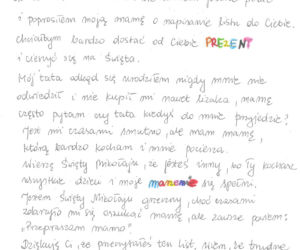 i poprosiłem moją mamę o napisanie listu do Ciebie.
chciałbym bardzo dostać od Ciebie PREZENT
i cieszyć się na Święta.
Mój tata odkąd się urodziłem nigdy mnie nie
odwiedził i nie kupił mi nawet lizaka, mamę
często pytam czy tata kiedyś do mnie przyjedzie?
Jest mi czasami smutno, ale mam mamę,
którą bardzo kocham i mnie pociesza.
Wierzę Święty Mikołaju, że jesteś inny, bo Ty kochasz
wszystkie dzieci i moje marzenie się spełni.
Jestem Święty Mikołaju grzeczny, choć czasami
zdarzyło mi się oszukać mamę, ale zawsze powiem:
"Przepraszam mamo".
Dziękuję Ci, że przeczytałeś ten list, wiem, że trudno